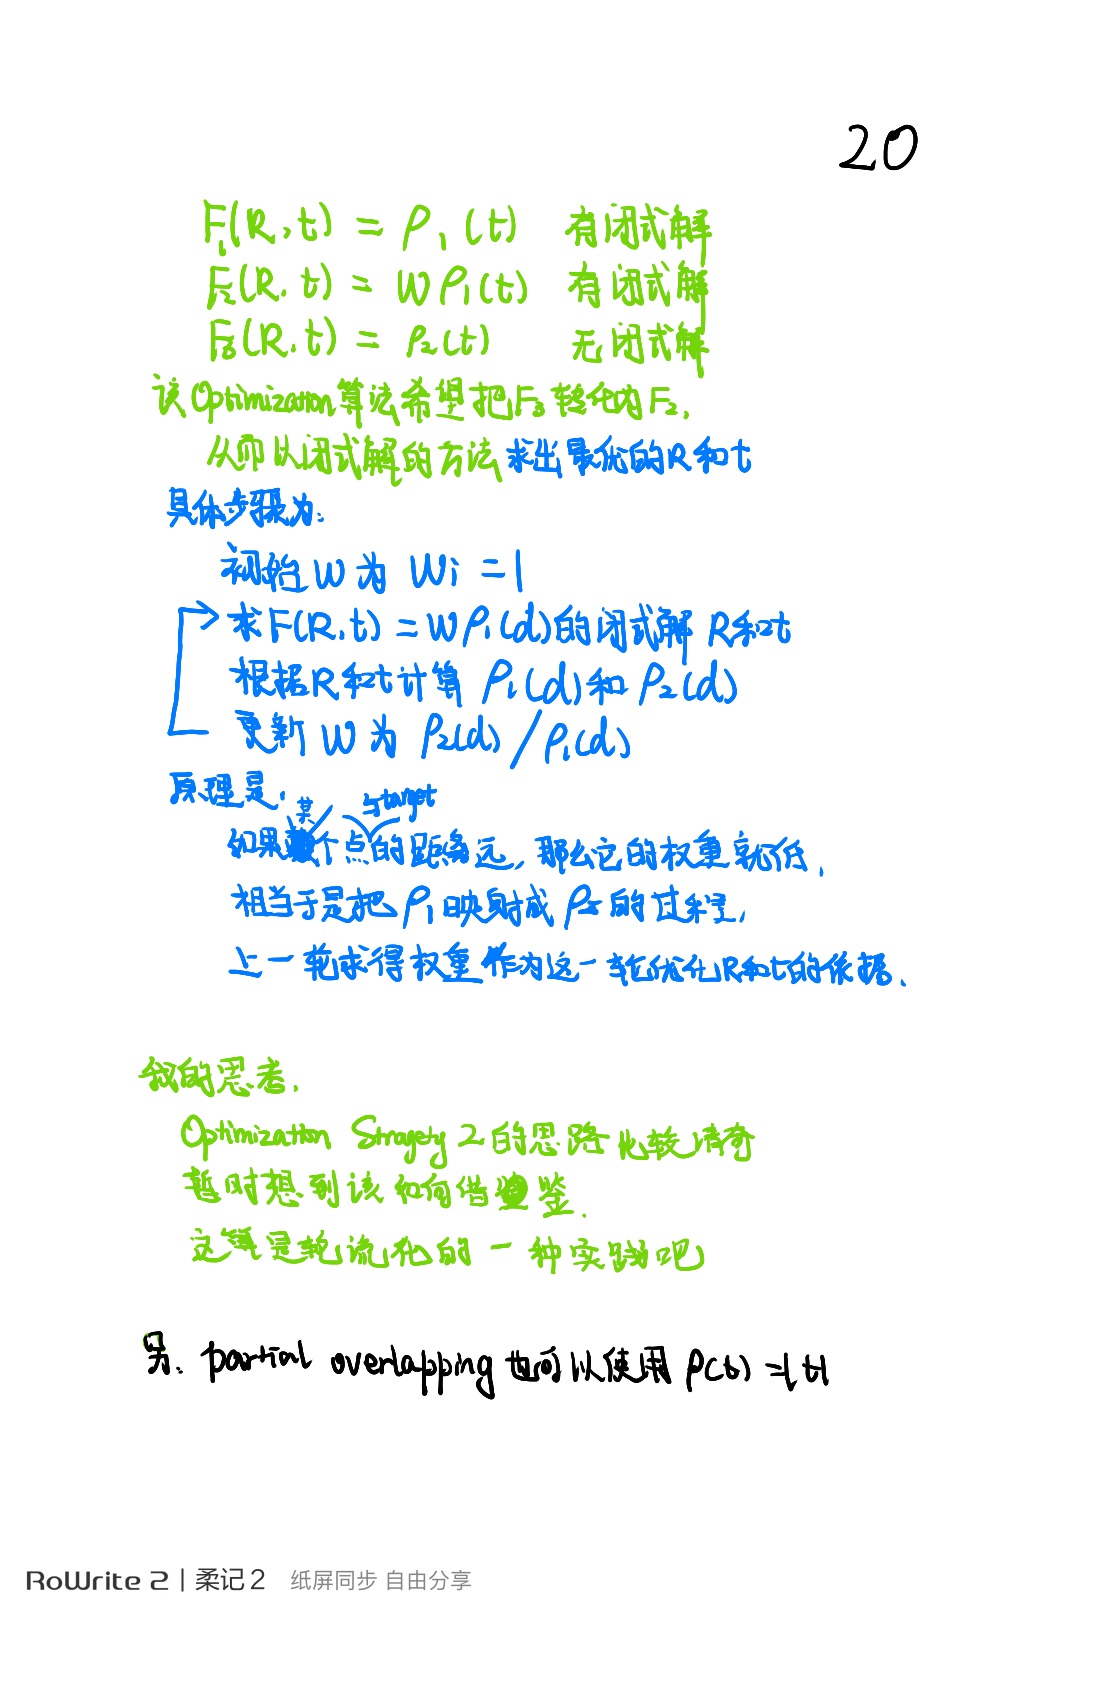 20
F₁(R,t) = ρ₁(t) 有闭式解
F₂(R,t) = Wρ₁(t) 有闭式解
F₃(R,t) = ρ₂(t) 无闭式解
该Optimization算法希望把F₃转化为F₂,
从而以闭式解的方法求出最优的R和t
具体步骤为:
初始W为 Wi = 1
求F(R,t) = Wρ₁(d)的闭式解 R和t
根据R和t计算 ρ₁(d)和 ρ₂(d)
更新 W 为 ρ₂(d) / ρ₁(d)
原理是,
某 与target
如果个点的距离远,那么它的权重就低,
相当于是把 ρ₁映射成 ρ₂的过程,
上一轮求得权重作为这一轮优化R和t的依据.
我的思考.
Optimization Stragety 2的思路比较清奇
暂时想到该如何借鉴.
这算是轮流化的一种实践吧
另. partial overlapping也可以使用 ρ(t) = |t|
RoWrite 2 | 柔记 2 纸屏同步 自由分享